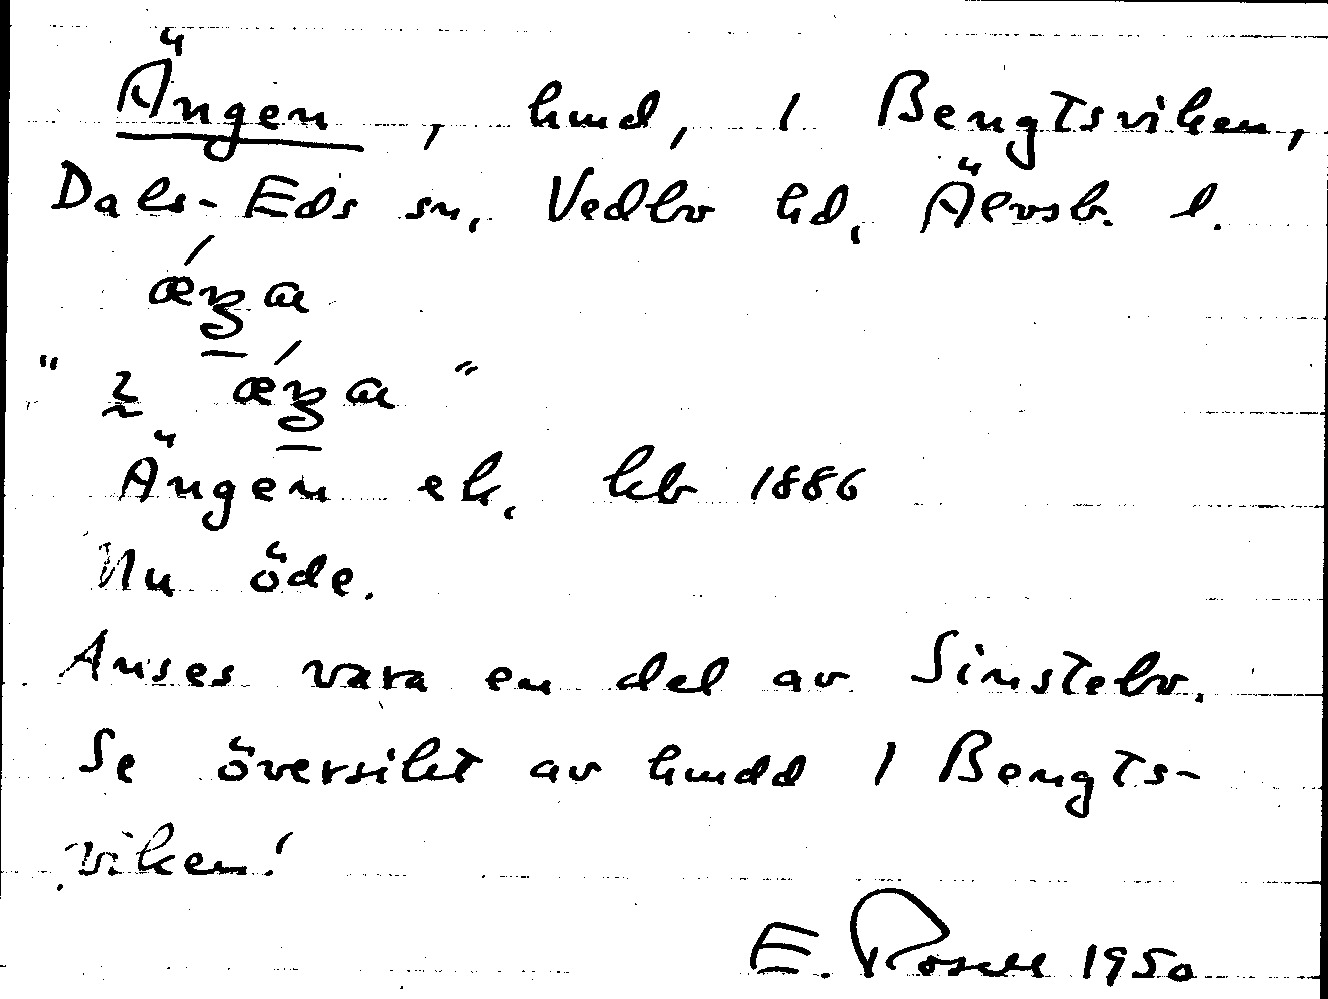 Ängen, hmd, 1 Bengtsviken,
Dals-Eds sn, Vedbo hd, Älvsb. l.
Ängen ek. kb 1886
Nu öde.
Anses vara en del av Sinstebo.
Se översikt av hmdd 1 Bengts-
viken!
E. Rosell 1950